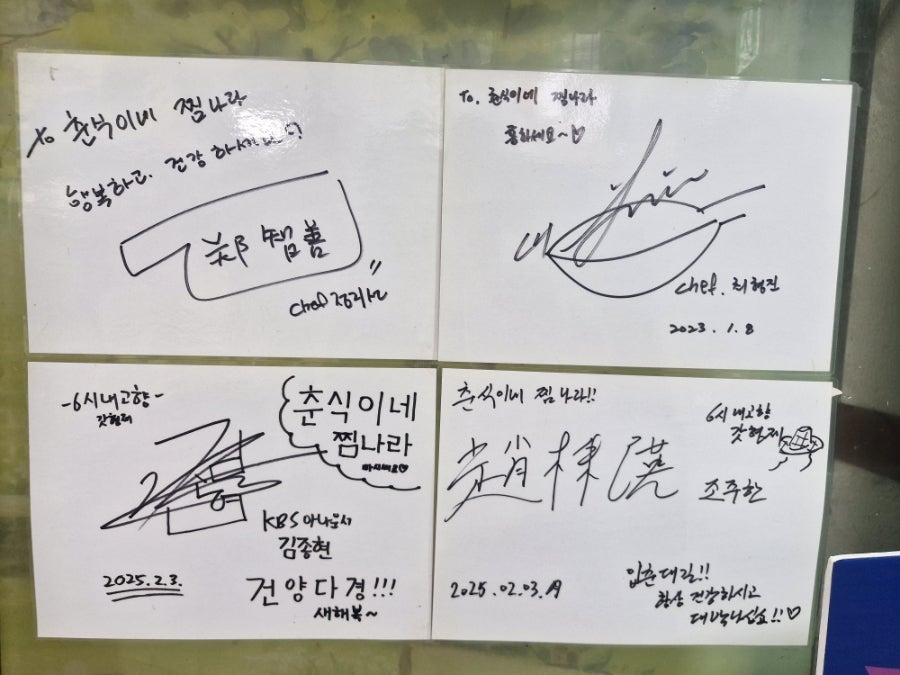 to 춘식이네 찜나라
행복하고. 건강하세요
鄭智善
Chef 정지선
To. 춘식이네 찜나라
흥하세요~♡
chef. 최형진
2023. 1. 8
-6시내고향-
갓형제
춘식이네
찜나라
KBS 아나운서
김종현
2025.2.3.
건양다경!!!
새해복~
춘식이네 찜나라!!
6시내고향
갓형제
조주한
2025.02.03.月
입춘대길!!
항상 건강하시고
대박나십쇼!!♡